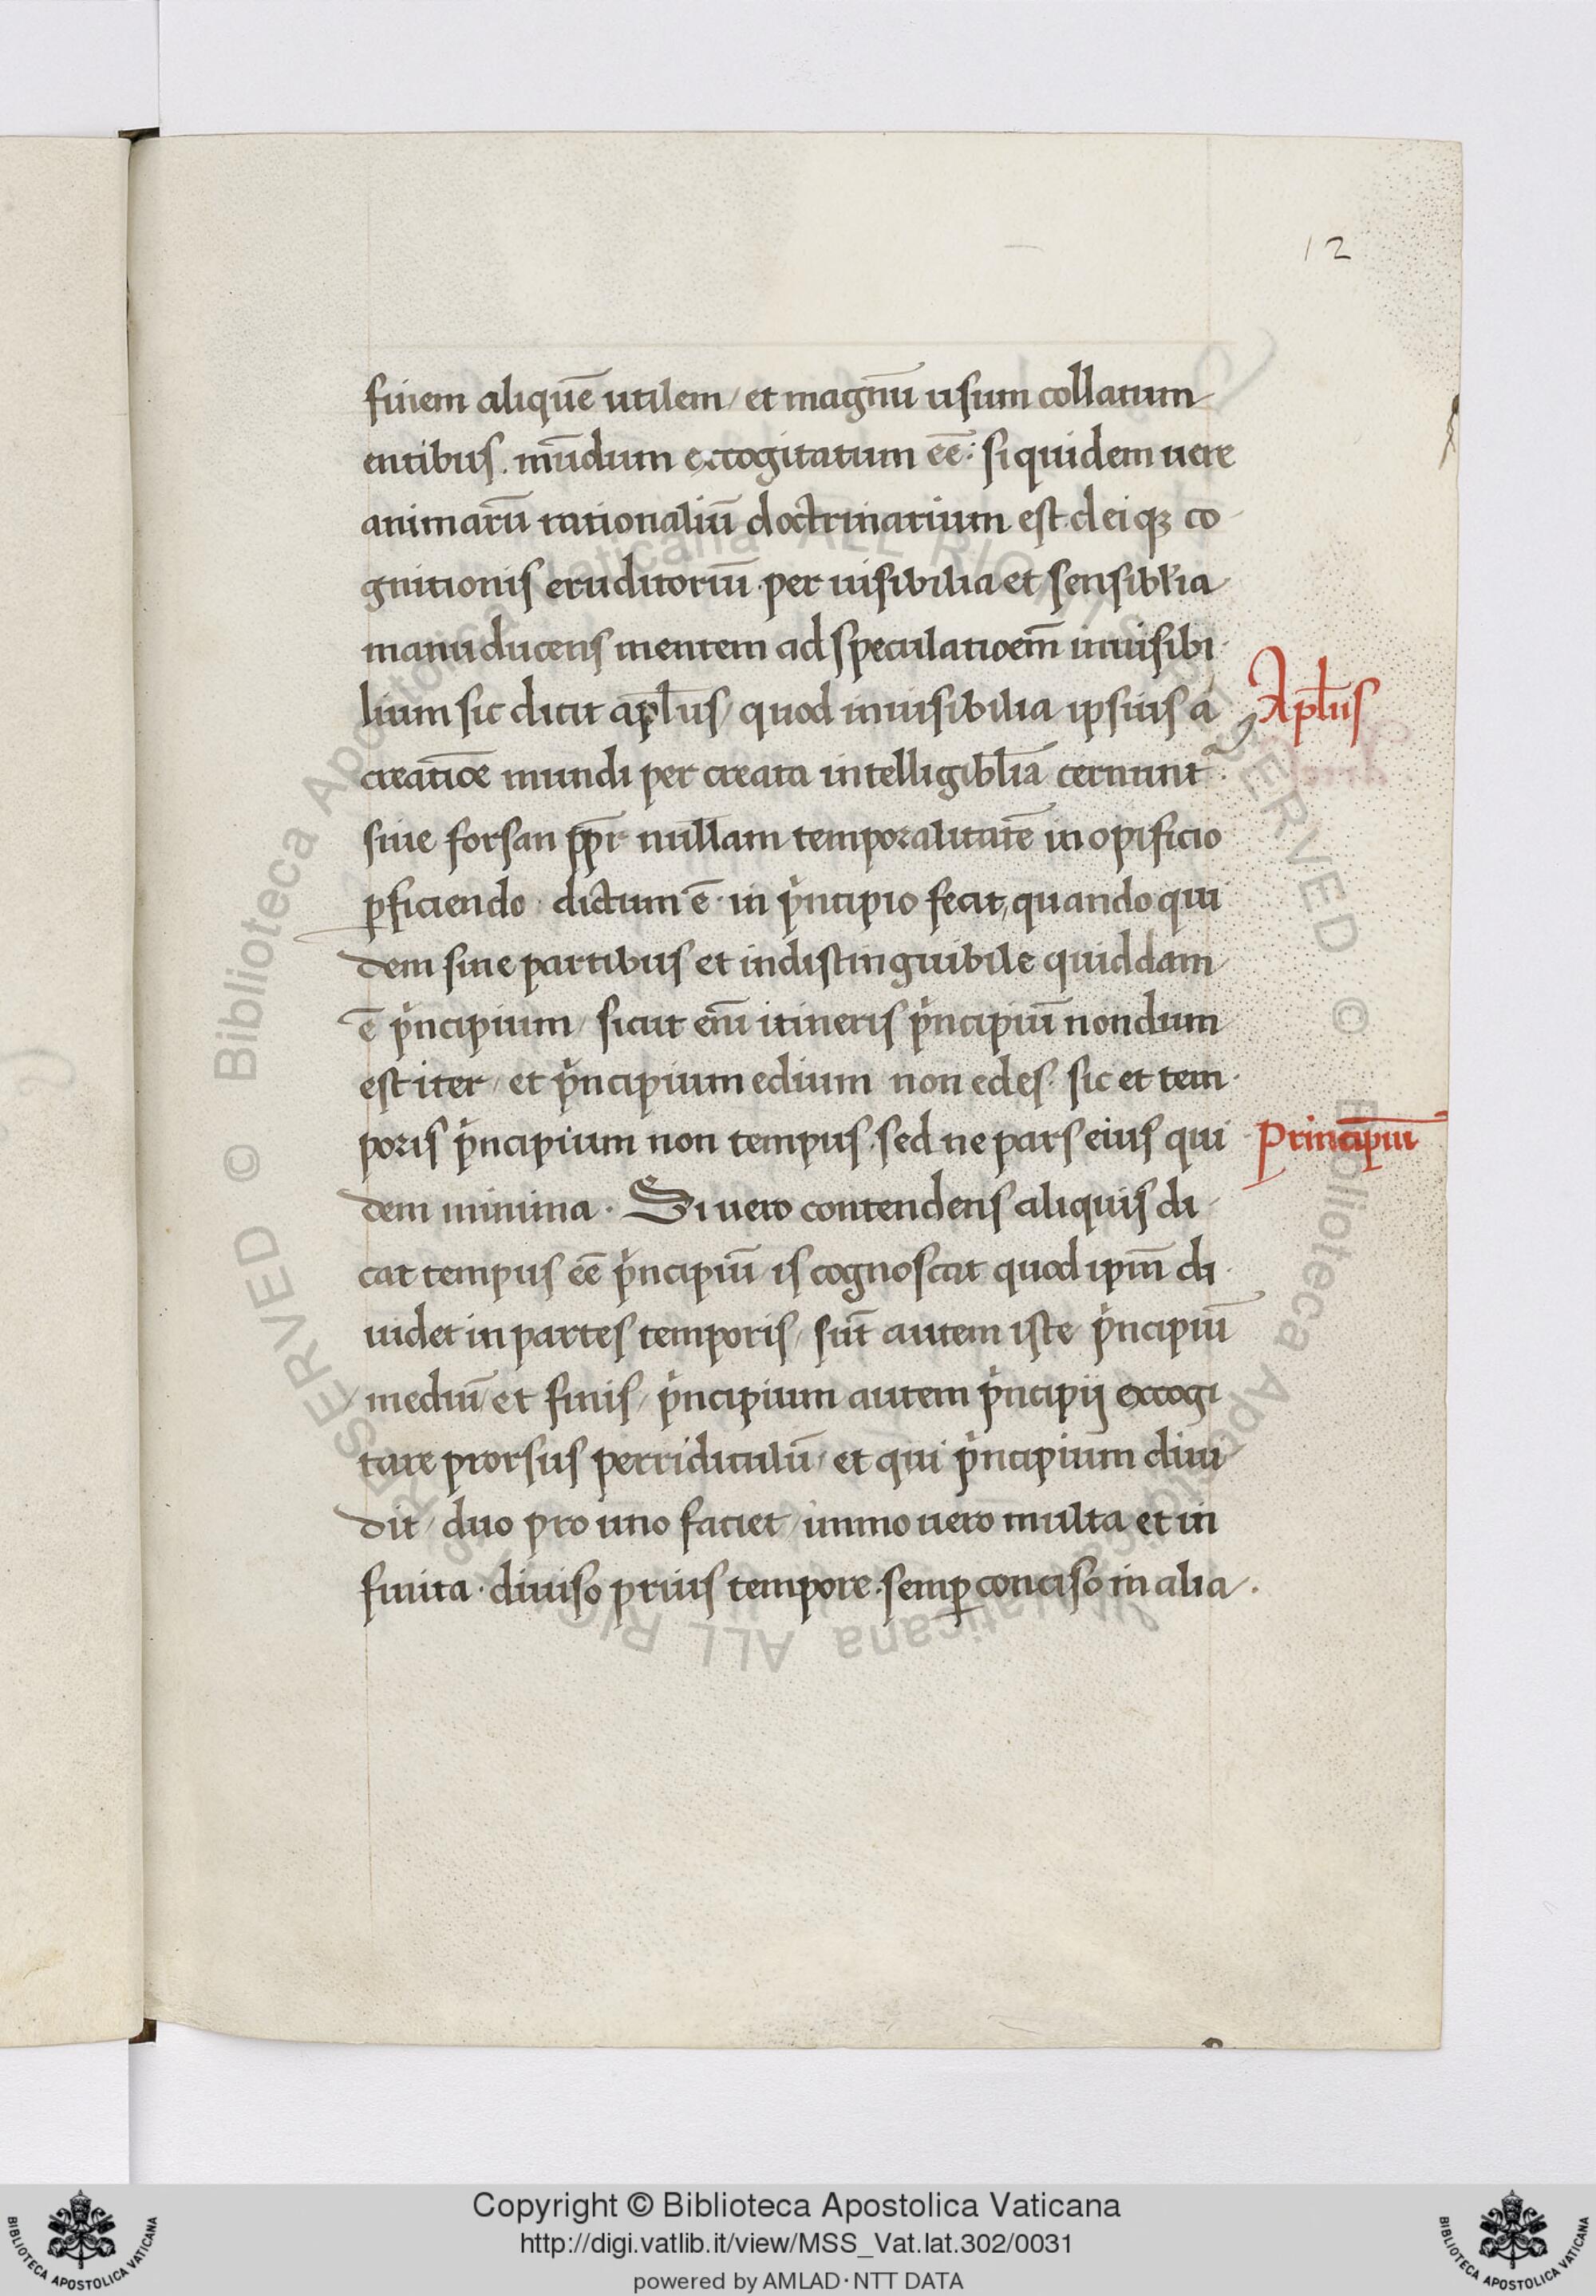 12
finem aliquē utilem / et magnū usum collatum
entibus. mūdum excogitatum eē: si quidem uere
animarū rationaliū doctrinarium est. dei qȝ co
gnitionis eruditoriū. per uisibilia et sensibl'ia
manuducens mentem ad speculatioem̄ inuisibi
lium sic dicit apl̄us / quod inuisibilia ipsius a
Apl̄us
creatiōe mundi per creata intelligibl̄ia cernunt᷒
siue forsan ꝓpr̄ nullam temporalitatē in opificio
ꝑficiendo. dictum ē. in pⁱncipio fecit, quando qui
dem sine partibus et indistinguibile quiddam
ē pⁱncipium / sicut eni᷒̄ itineris pⁱncipiū nondum
est iter / et pⁱncipium edium non edes. sic et tem
poris pⁱncipium non tempus. sed ne pars eius qui
Principiū
dem minima. Si uero contendens aliquis di
cat tempus eē pⁱncipiū is cognoscat quod ipm̄ di
uidet in partes temporis / sūt autem iste pⁱncipiū
/ mediū / et finis / pⁱncipium autem pⁱncipij excogi
tare prorsus perridiculū / et qui pⁱncipium diui
dit / duo pro uno faciet / immo uero multa et in
finita. diuiso prius tempore. semꝑ conciso in alia.
Copyright © Biblioteca Apostolica Vaticana
http://digi.vatlib.it/view/MSS_Vat.lat.302/0031
powered by AMLAD·NTT DATA
BIBLIOTECA APOSTOLICA VATICANA
BIBLIOTECA APOSTOLICA VATICANA
© Biblioteca Apostolica Vaticana ALL RIGHTS RESERVED © Biblioteca Apostolica Vaticana ALL RIGHTS RESERVED